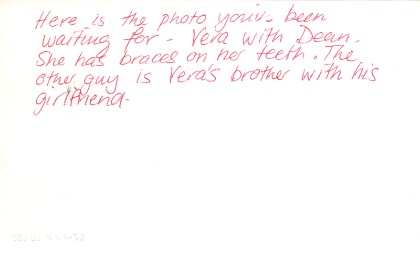 Here is the photo you'v been
waiting for - Vera with Dean.
She has braces on her teeth. The
other guy is Vera's brother with his
girlfriend.